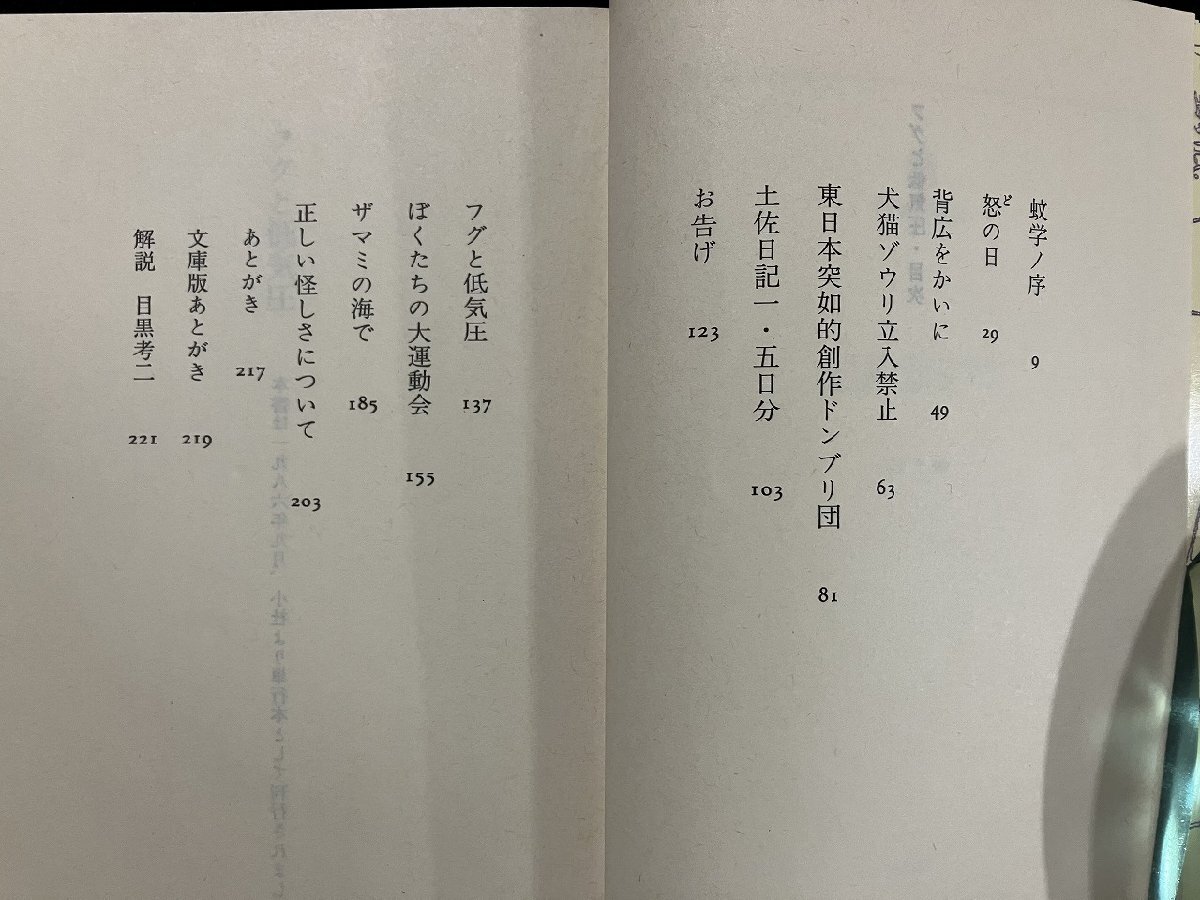 蚊学ノ序 9
怒の日 29
ど
背広をかいに 49
犬猫ゾウリ立入禁止 63
東日本突如的創作ドンブリ団 81
土佐日記一・五日分 103
お告げ 123
フグと低気圧 137
ぼくたちの大運動会 155
ザマミの海で 185
正しい怪しさについて 203
あとがき 217
文庫版あとがき 219
解説 目黒考二 221